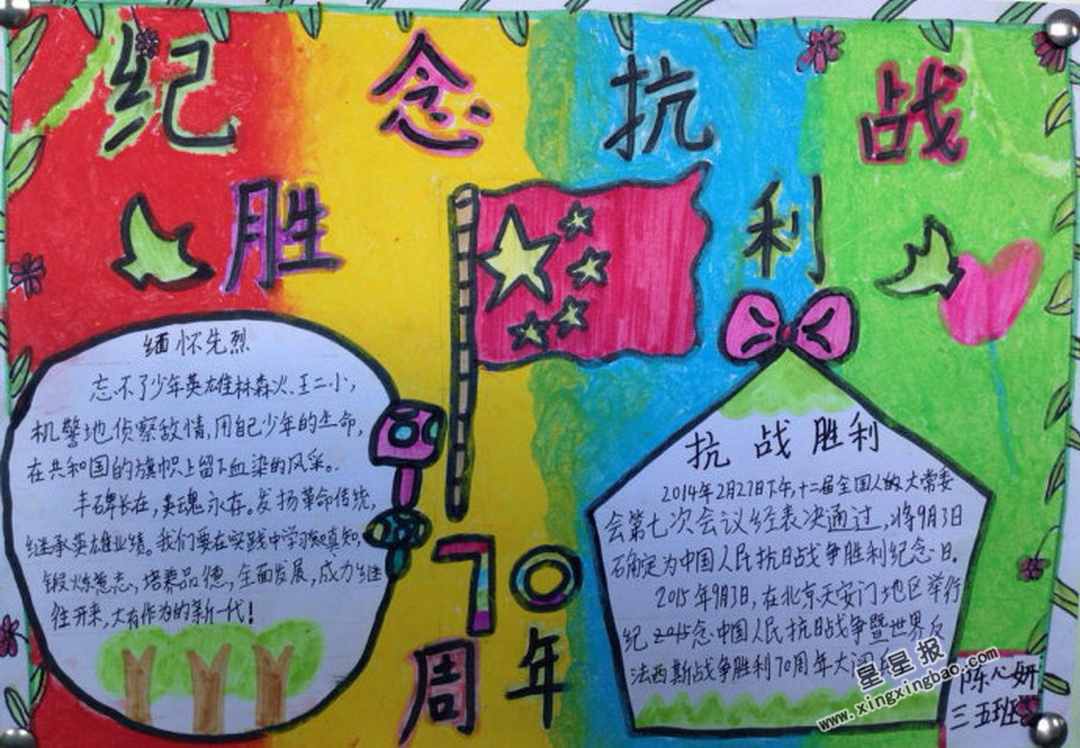 纪念抗战
胜利
70
周年
缅怀先烈
忘不了少年英雄林森火、王二小,
机警地侦察敌情,用自己少年的生命,
在共和国的旗帜上留下血染的风采。
丰碑长在,英魂永存。发扬革命传统,
继承英雄业绩。我们要在实践中学习知真知,
锻炼意志,培养品德,全面发展,成为继
往开来,大有作为的新一代!
抗战胜利
2014年2月27日下午,十二届全国人的大常委
会第七次会议经表决通过,将9月3日
确定为中国人民抗日战争胜利纪念日。
2015年9月3日,在北京天安门地区举行
纪2015念中国人民抗日战争暨世界反
法西斯战争胜利70周年大
陈心妍
三五班
星星报
www.xingxingbao.com